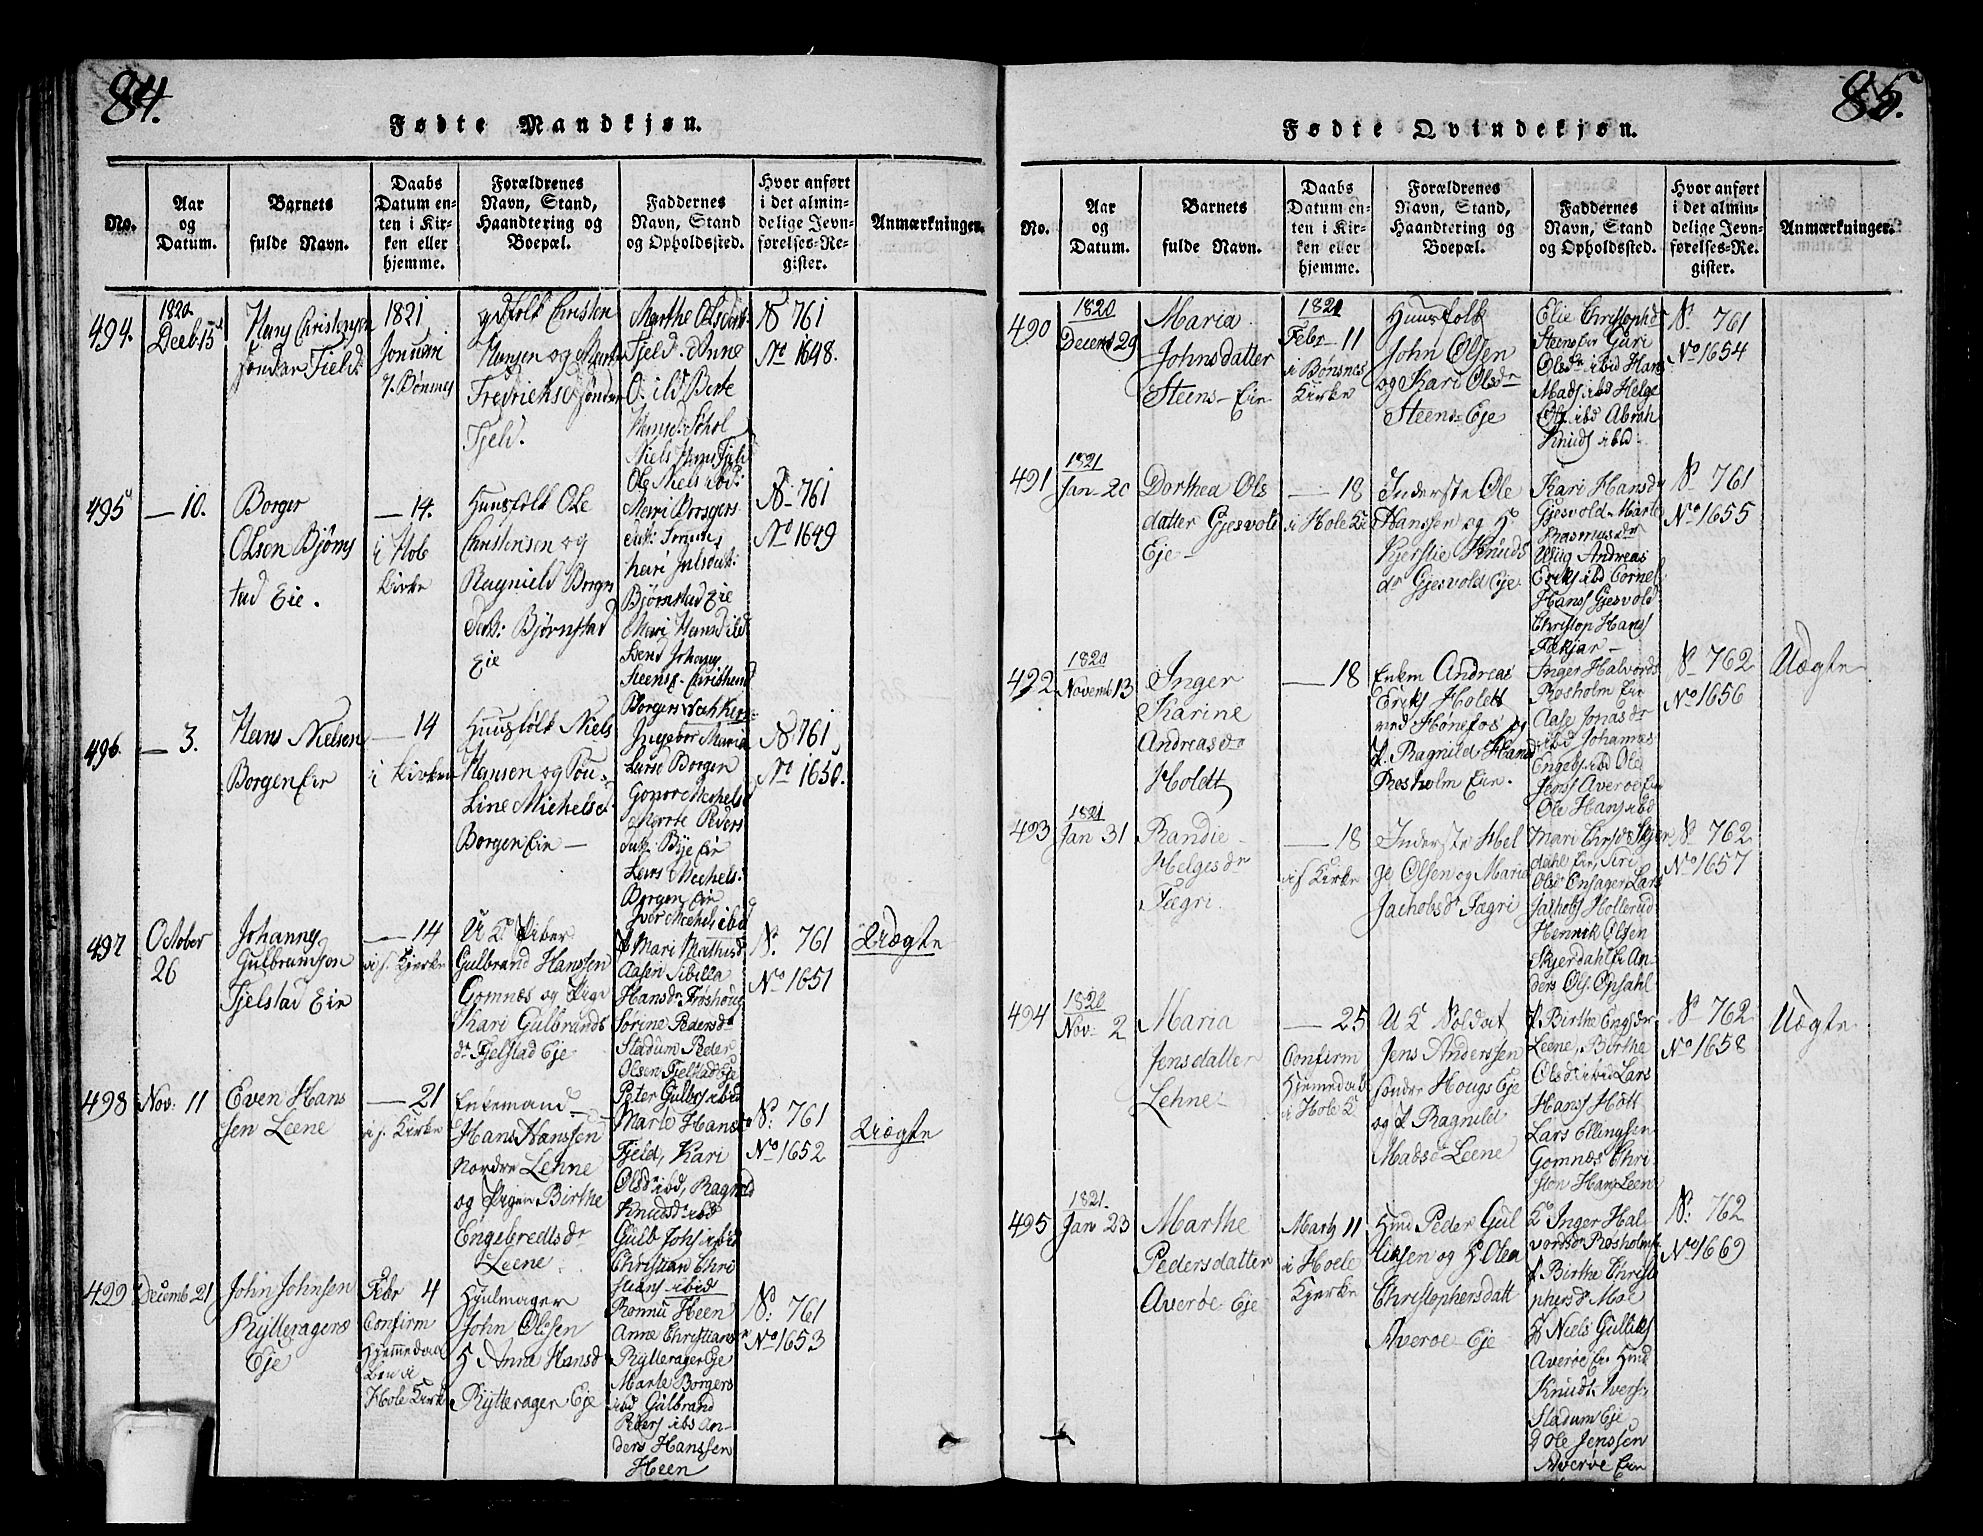 84.
Fødte Mandkjøn.
No.
Aar
og
Datum.
Barnets
fulde Navn.
Daabs
Datum en-
ten i Kir-
ken eller
hjemme.
Forældrenes
Navn, Stand,
Haandtering og
Boepæl.
Faddernes
Navn, Stand
og Opholdssted.
Hvor anført
i det almin-
delige Jevn-
førelses-Re-
gister.
Anmærkninger.
494.
1820
Decb. 15
Hans Christensen
søndre Fjeld
1821
Januari
7. Bønsnes
gdfolk Christen
Hansen og Marte
Fredriksd søndre
Fjeld.
Marthe Olsdat:
Fjeld. Anne
O. ibid Berte
Hansd:
Niels Hans Fjeld
Ole Niels ibid:
N 761
No 1648.
495
— 10.
Borger
Olsen Bjørns
tad Eie.
— 14.
i Hole
Kirke
Huusfolk Ole
Christensen og
Ragnild Borger
datt: Bjørnstad
Eie
Mari Borgers
datt:
Bjørnstad Eie
Mari Hansd ibd
Svend Johans
Steens-
Borgers
N 761
No 1649
496
— 3.
Hans Nielsen
Borgen Eie
— 14
i Kirken
Huusfolk Niels
Hansen og Pou-
Line Michelsd.
Borgen Eie —
Ingebor Maria
Larsd Borgen
Gonor Michels
Marte Peders
datt. Bye Eie
Lars Michels.
Borgen Eie
Iver Michels ibd
N 761
No 1650.
497
October
26
Johannes
Gulbrandsen
Fjelstad Eie
— 14
i s. Kjerke
U K. Piber
Gulbrand Hanssen
Gomnæs og Pige
Kari Gulbrands
dr Fjelstad Eje
P Mari Mathisd
Aasen Sibilla
Hansdr Frøshoug
Sørine Pedersdr
Stadum Peder
Olsen Fjelstad Eje
Peter Gulbrs ibid
N. 761
No 1651
Uægte
498
Nov: 11
Even Hans
sen Leene
— 21
i s. Kirke
Enkemand
Hans Hanssen
Nordre Lehne
og Pigen Birthe
Engebredtsdr
Leene
Marte Hansd
Fjeld, Kari
Olsdr ibd, Ragnild
Knudsdr ibd
Gulb Johs ibid
Christian Chri
stians ibid
N: 761
No 1652
Uægte
499
Decemb 21
John Johnsen
Rytteragere
Eje
Febr 4
Confirm
Hjemmedaa
ben i
Hole Kirke
Hjulmager
John Olssen
H Anne Hansd
Rytterager Eje
Ronnu Heen
Anne Christians
Rytterager Eje
Marte Borgers
ibd Gulbrand
Peders ibd An-
ders Hanssen
Heen
N. 761
No 1653
85.
Fødte Qvindekjøn.
No.
Aar
og
Datum.
Barnets
fulde Navn.
Daabs
Datum en-
ten i Kir-
ken eller
hjemme.
Forældrenes
Navn, Stand,
Haandtering og
Boepæl.
Faddernes
Navn, Stand
og Opholdssted.
Hvor anført
i det almin-
delige Jevn-
førelses-Re-
gister.
Anmærkninger.
490
1820
Decemb 29
Maria
Johnsdatter
Steens-Eie
1821
Febr 11
i Bønsnes
Kirke
Huusfolk
John Olsen
og Kari Olsdr
Steens-Eje
Elie Christophd
Steens Eie Guri
Olsdr ibid Hans
Mads. ibd Helge
Ols ibd Abrah
Knuds ibd
N. 761
No 1654
491
1821
Jan 20
Dorthea Ols
datter Gjesvold
Eje
— 18
i Hole K
Inderste Ole
Hanssen og H.
Kjerstie Knuds
dr Gjesvold Eje
Kari Hansd
Gjesvold Marte
Rasmusdr
Viig Andreas
Eriks ibd Cornel
Hans Gjesvold
Christop Hans
Fækjær
N. 761
No 1655
492
1820
Novemb 13
Inger
Karine
Andreasdr
Holett
— 18
Enkem Andreas
Eriks Holett
ved Hønefos og
P. Ragnild Hansd
Rosholm Eie.
Inger Halvords
Rosholm Eie
Aase Jonasdr
ibd Johannes
Engebs. ibd Ole
Averøe Eie
Ole Hans ibd
N 762
No 1656
Uægte
493
1821
Jan 31
Randie
Helgesdr
Fægri.
— 18
i s Kirke
Inderste Hel
ge Olsen og Maria
Jachobsdr Fægri
Mari Chrsdr Skjer
dahl Eie, Siri
Olsdr Onsager Lars
Jachobs Hollerud
Henrik Olsen
Skjerdahl Ei An-
ders Ols. Opsahl
N 762
No 1657
494
1820
Nov. 2
Maria
Jensdatter
Lehne
— 25
Confirm
Hjemedaab
i Hole K
U K Soldat
Jens Anderssen
søndre Hougs Eje
og P Ragnild
Madsd Leene
P Birthe Engsdr
Leene, Birthe
Olsdr ibid Lars
Hans Hott
Lars Ellingsen
Gomnæs Chri
ston Hans Leen
N 762
No 1658
Uægte
495
1821.
Jan 23
Marthe
Pedersdatter
Averøe Eje
Marts 11
i Hoele
Kjerke
Huusd Peder Gul
liksen og H Olea
Christophersdatt
Averøe Eje
K. Inger Hal
vordsdr Rosholm
P Birthe Christo
phersdr Moe
H Niels Gulliks
Averøe Eie Huusd
Knudt Ivers
Stadum Eje
Ole Jenssen
Averøe Eie
N. 762
No 1669